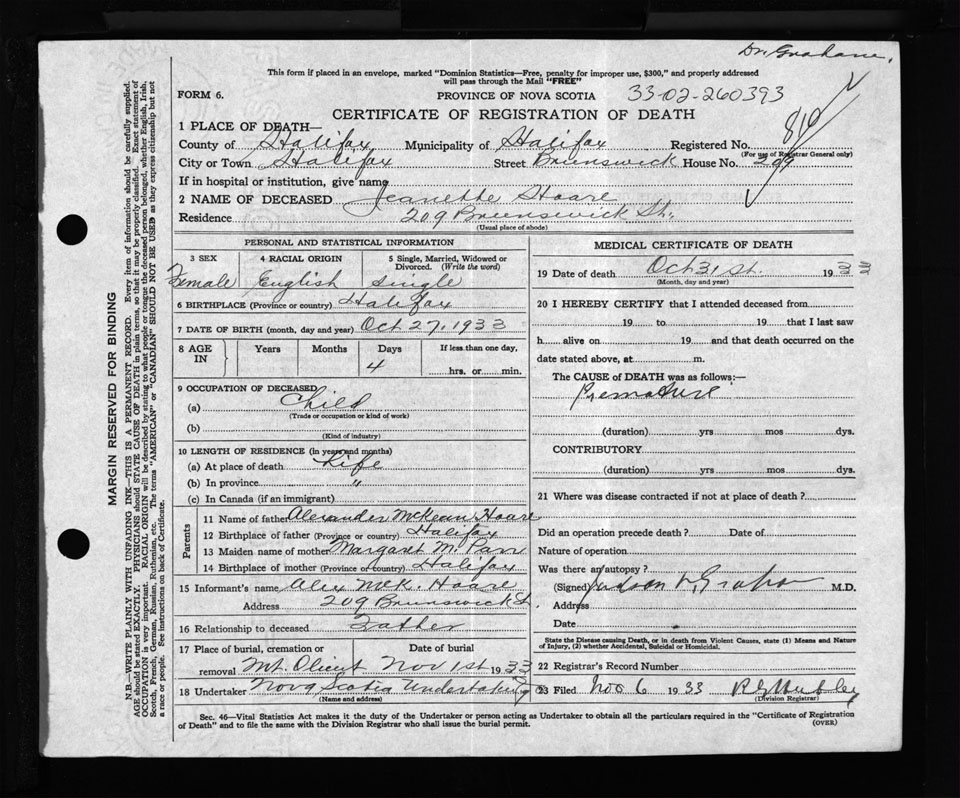 Dr. Graham.
This form if placed in an envelope, marked "Dominion Statistics—Free, penalty for improper use, $300," and properly addressed
will pass through the Mail "FREE"
FORM 6. PROVINCE OF NOVA SCOTIA 33-02-260393
CERTIFICATE OF REGISTRATION OF DEATH
1 PLACE OF DEATH—
County of Halifax Municipality of Halifax Registered No. 810
(For use of Registrar General only)
City or Town Halifax Street Brunswick House No. 209
If in hospital or institution, give name
2 NAME OF DECEASED Jeanette Hoare
Residence 209 Brunswick St.
(Usual place of abode)
PERSONAL AND STATISTICAL INFORMATION
3 SEX 4 RACIAL ORIGIN 5 Single, Married, Widowed or
Divorced. (Write the word)
Female English single
6 BIRTHPLACE (Province or country) Halifax
7 DATE OF BIRTH (month, day and year) Oct 27, 1933
8 AGE IN Years Months Days If less than one day,
4 hrs. or min.
9 OCCUPATION OF DECEASED
(a) Child
(Trade or occupation or kind of work)
(b)
(Kind of industry)
10 LENGTH OF RESIDENCE (in years and months)
(a) At place of death Life
(b) In province "
(c) In Canada (if an immigrant)
Parents
11 Name of father Alexander McKean Hoare
12 Birthplace of father (Province or country) Halifax
13 Maiden name of mother Margaret M. Parr
14 Birthplace of mother (Province or country) Halifax
15 Informant's name Alex McK. Hoare
Address 209 Brunswick St.
16 Relationship to deceased Father
17 Place of burial, cremation or Date of burial
removal Mt. Olivet Nov 1st 1933
18 Undertaker Nova Scotia Undertaking Co
(Name and address)
MEDICAL CERTIFICATE OF DEATH
19 Date of death Oct 31st. 1933
(Month, day and year)
20 I HEREBY CERTIFY that I attended deceased from
19 to 19 that I last saw
h alive on 19 and that death occurred on the
date stated above, at m.
The CAUSE OF DEATH was as follows:—
Premature
(duration) yrs mos dys.
CONTRIBUTORY
(duration) yrs mos dys.
21 Where was disease contracted if not at place of death?
Did an operation precede death? Date of
Nature of operation
Was there an autopsy?
(Signed) Judson V. Graham M.D.
Address
Date
State the Disease causing Death, or in death from Violent Causes, state (1) Means and Nature
of Injury, (2) whether Accidental, Suicidal or Homicidal.
22 Registrar's Record Number
23 Filed Nov 6 1933
(Division Registrar)
Sec. 46—Vital Statistics Act makes it the duty of the Undertaker or person acting as Undertaker to obtain all the particulars required in the "Certificate of Registration
of Death" and to file the same with the Division Registrar who shall issue the burial permit. (OVER)
MARGIN RESERVED FOR BINDING
N.B.—WRITE PLAINLY WITH UNFADING INK—THIS IS A PERMANENT RECORD. Every item of information should be carefully supplied.
AGE should be stated EXACTLY. PHYSICIANS should STATE CAUSE OF DEATH in plain terms, so that it may be properly classified. Exact statement of
OCCUPATION is very important. RACIAL ORIGIN will be described by stating to what people or tongue the deceased person belonged, whether English, Irish,
Scotch, French, German, Russian, Ruthenian, etc. The terms "AMERICAN" or "CANADIAN" SHOULD NOT BE USED as they express citizenship but not
a race or people. See instructions on back of Certificate.